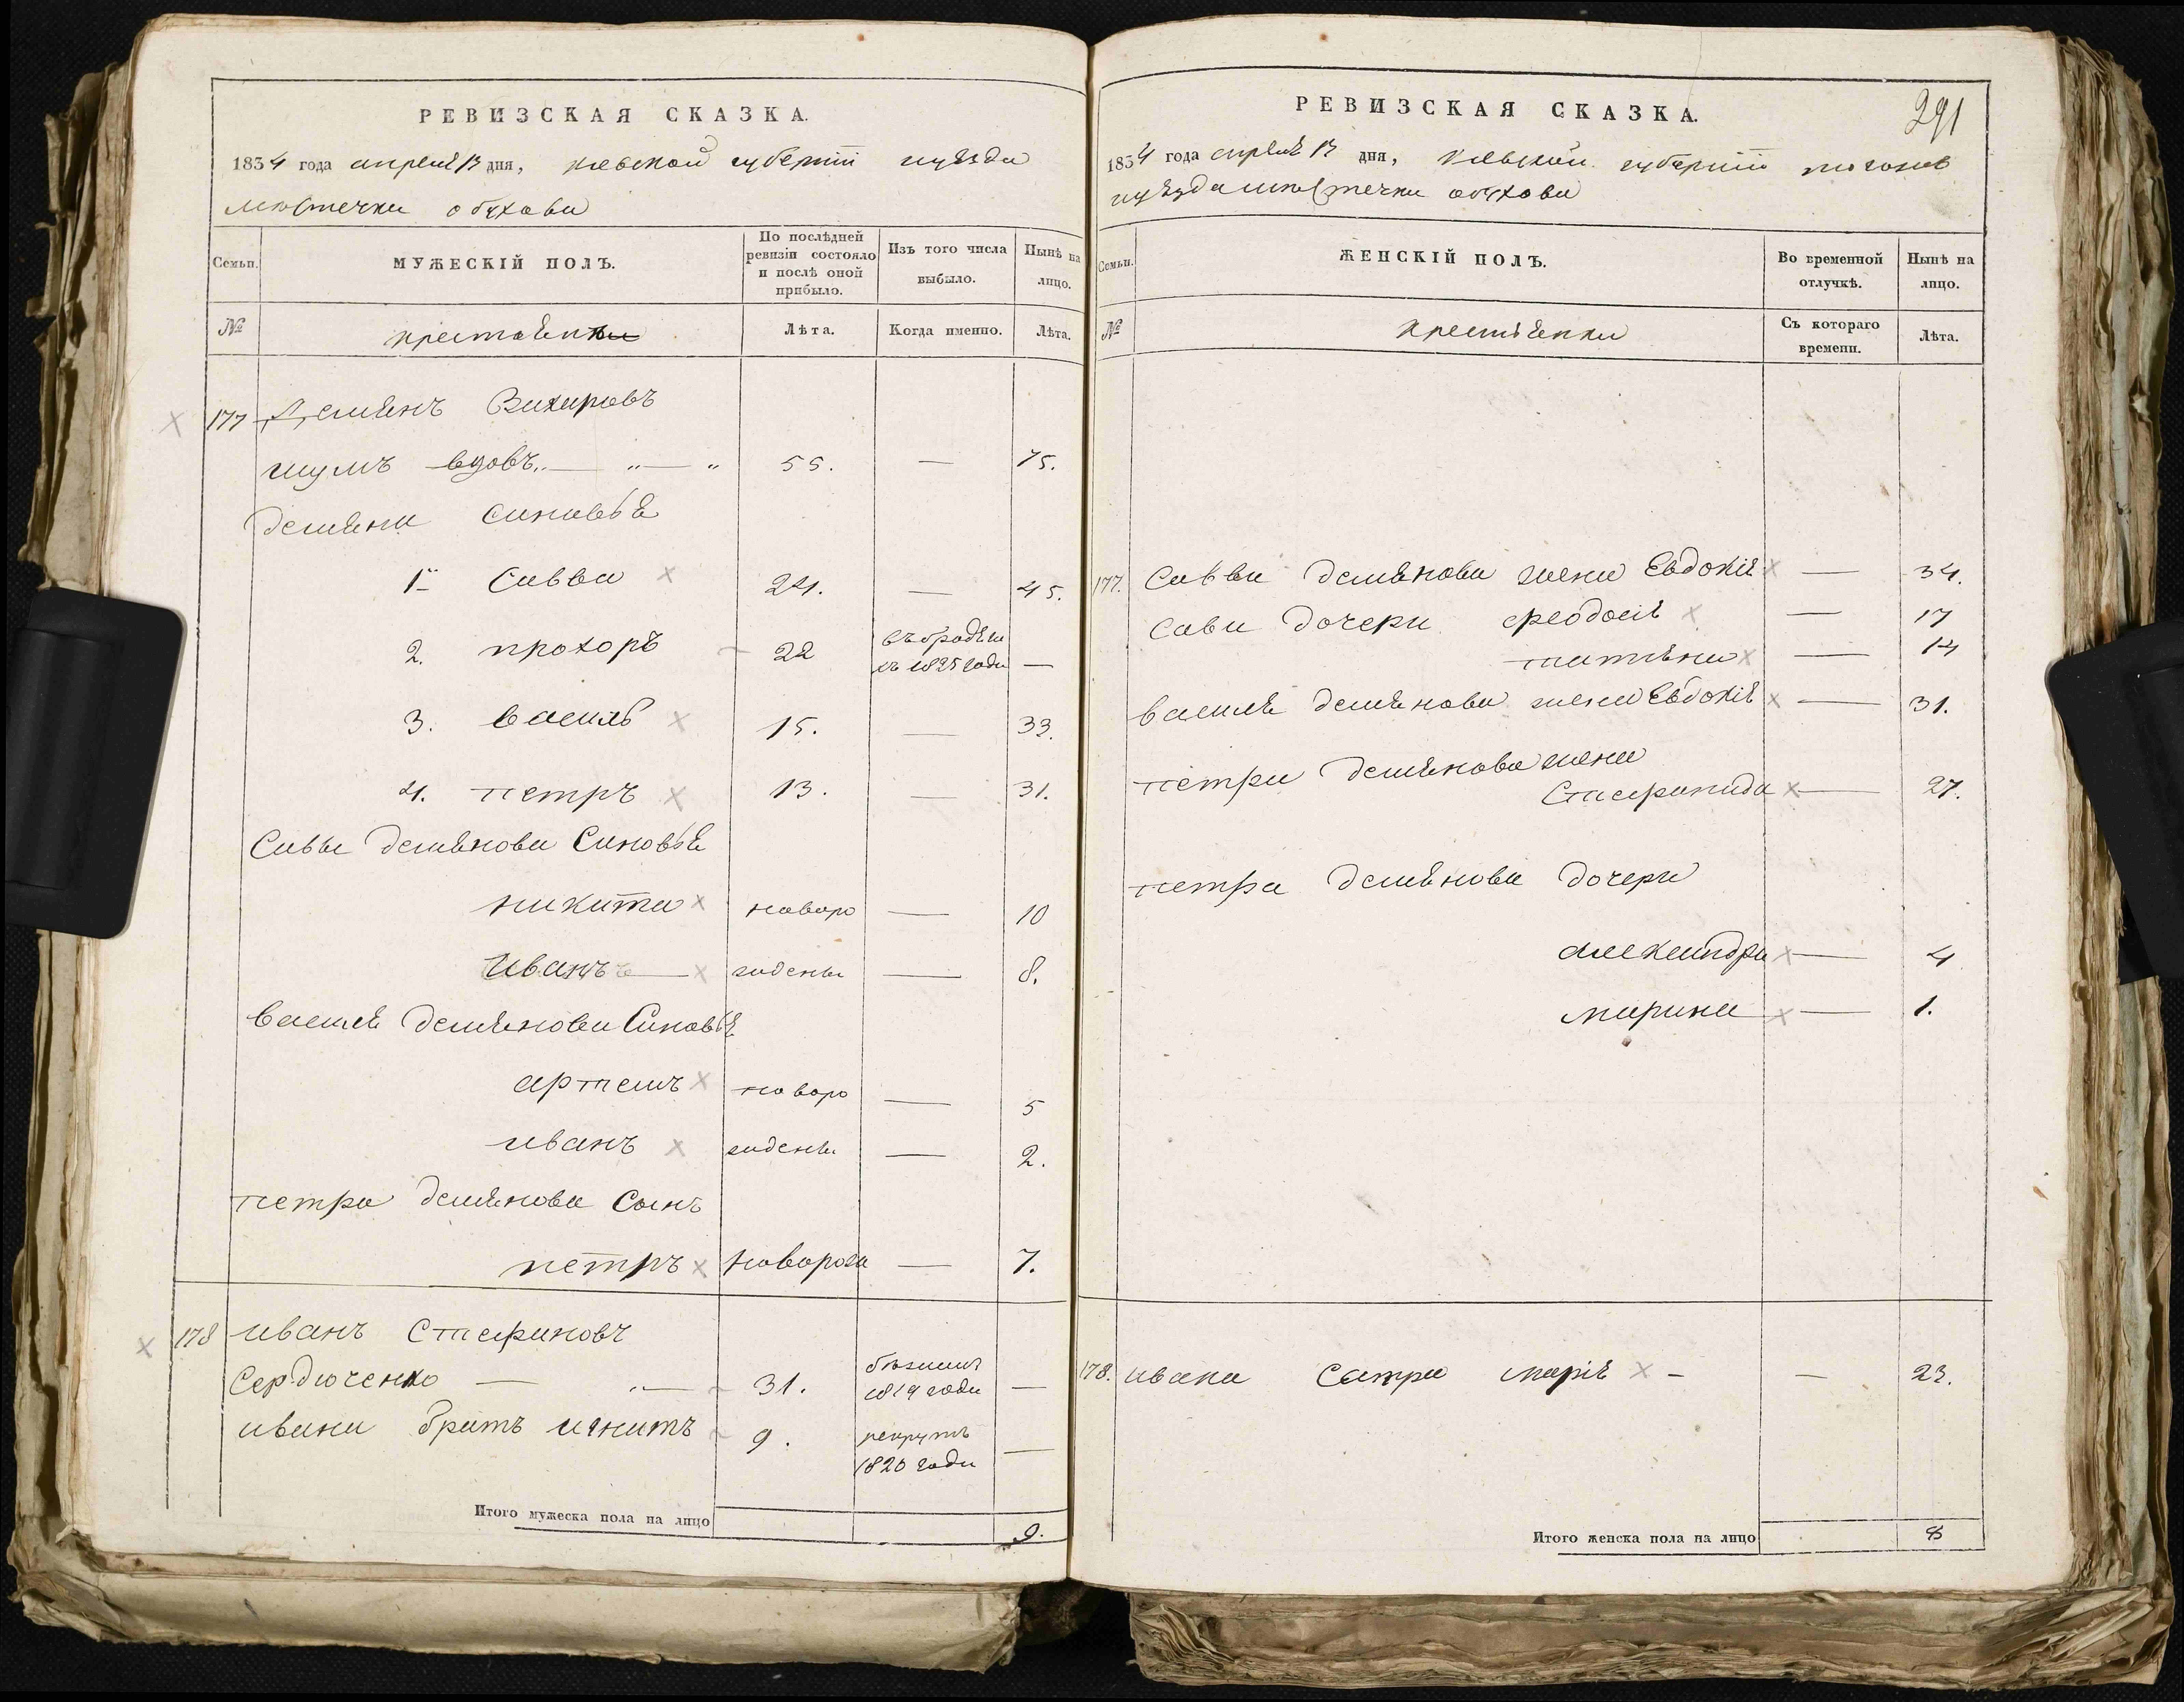 РЕВИЗСКАЯ СКАЗКА.
1834 года апреля 13 дня, киевской губернии уезда
местечка обухова
Семьи.
МУЖЕСКІЙ ПОЛЪ.
По послѣдней ревизіи состояло и послѣ оной прибыло.
Изъ того числа выбыло.
Нынѣ на лицо.
№
крестьяне
Лѣта.
Когда именно.
Лѣта.
177 Демянъ Захаровъ
шумъ вдовъ 55. — 75.
демяна синовья
1 Савва 24. — 45.
2. прохоръ 22 въ 1825 года —
3. василь 15. — 33.
4. петръ 13. — 31.
Савы демянова Синовья
никита новоро — 10
Иванъ ждены — 8.
василя демянова Синовья
артемъ новоро — 5
иванъ ждены — 2.
петра демянова Сынъ
петръ новорож — 7.
178 иванъ Стефановъ
Сердюченко — 31. бежалъ 1819 года —
ивана братъ игнатъ 9. рекрутъ 1820 года —
Итого мужеска пола на лицо 9.
РЕВИЗСКАЯ СКАЗКА.
291
1834 года апреля 13 дня, киевской губернии
уезда местечка обухова
Семьи.
ЖЕНСКІЙ ПОЛЪ.
Во временной отлучкѣ.
Нынѣ на лицо.
№
крестянки
Съ котораго времени.
Лѣта.
177. Савви демянова жена Евдокія — 34.
Сави дочери феодосія — 17
татіяна — 14
василя демянова жена Евдокія — 31.
петра демянова жена
Стефанида — 27.
петра демянова дочери
александра — 4
марина — 1.
178. ивана Сестра марія — — 23.
Итого женска пола на лицо 8